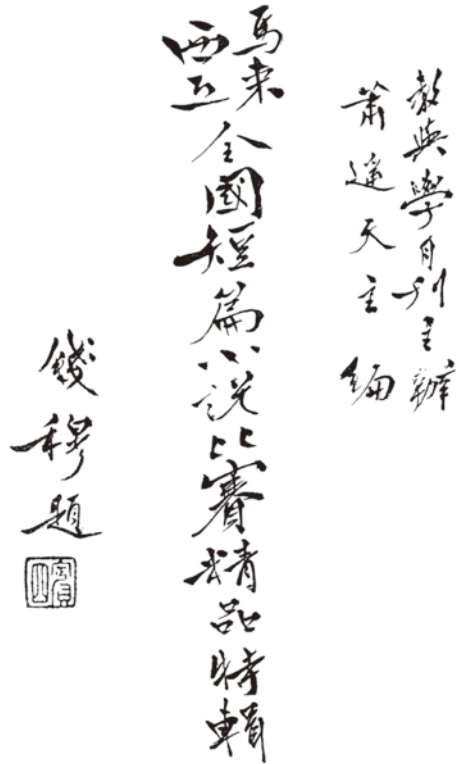 教與學月刊主辦
蕭遙天主編
馬來西亞全國短篇小說比賽精品特輯
錢穆題
賓四